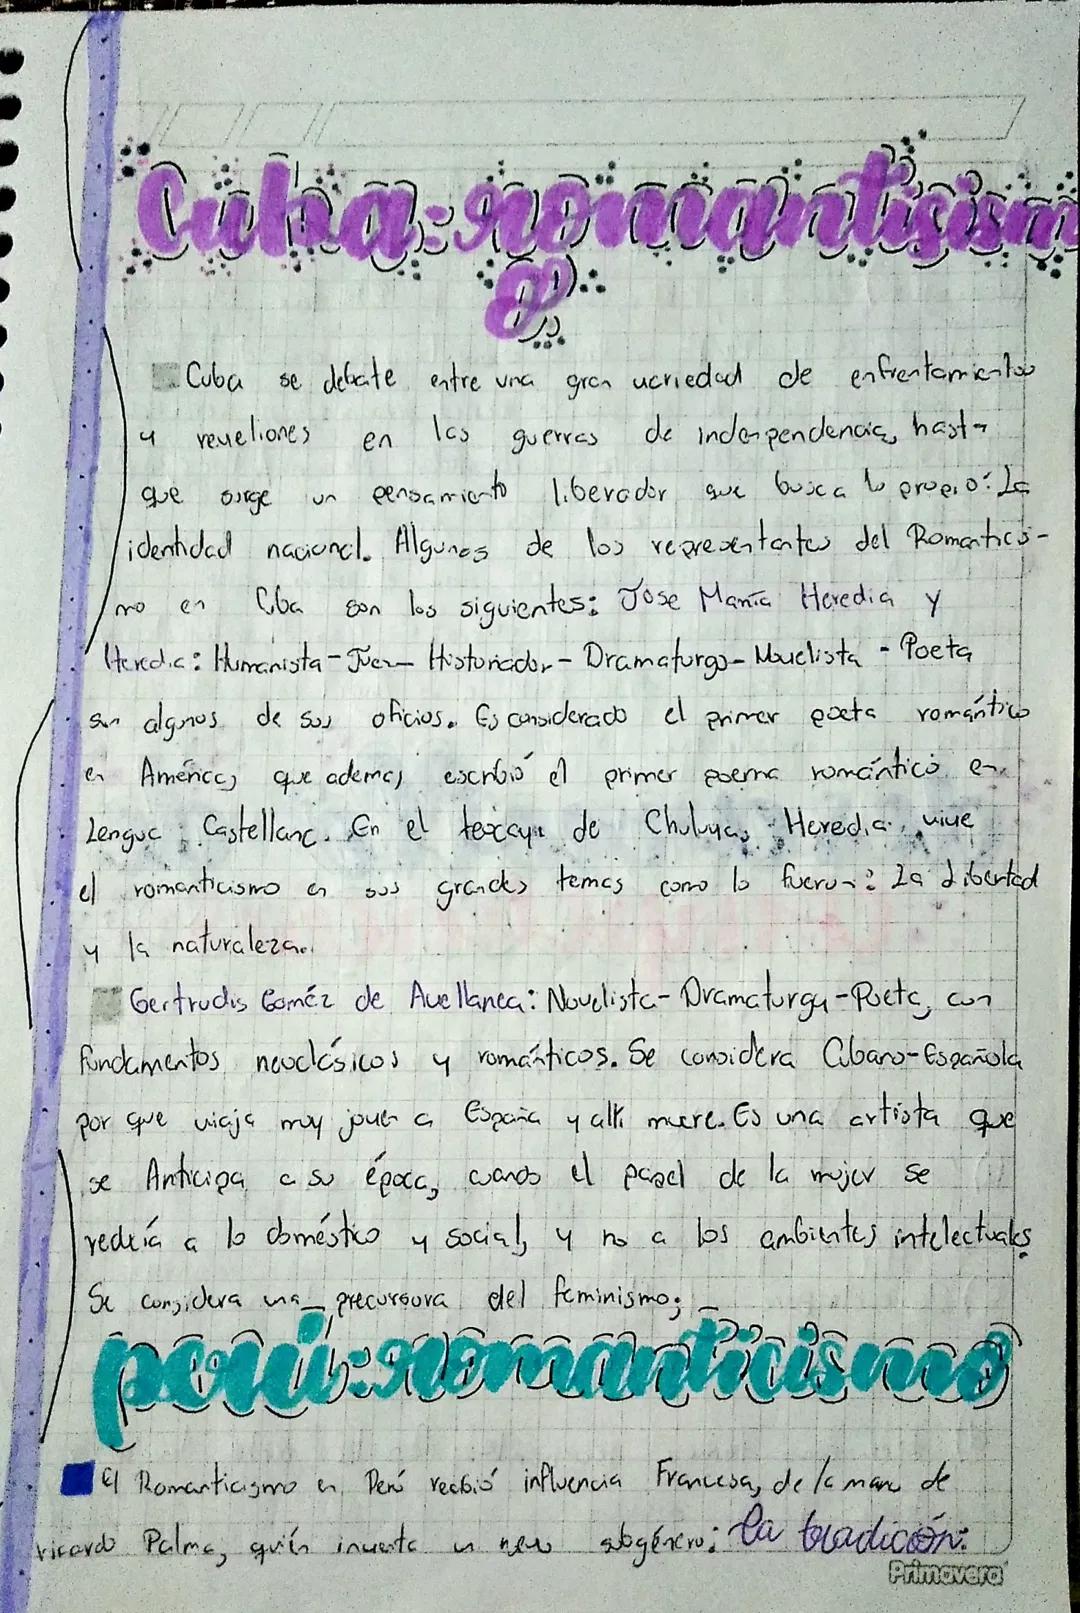 Cuba: romanticism
o
Cuba se debate entre una gran variedad de enfrentamientos
y reveliones en las guerras de independencia, hasta
que surge un pensamiento liberador que busca lo propio: La
identidad nacional. Algunos de los representantes del Romanticis-
mo en Cuba son los siguientes: Jose María Heredia y
Heredia: Humanista - Juez - Historiador - Dramaturgo - Novelista - Poeta
son algunos de sus oficios. Es considerado el primer poeta romántico
en América, que ademas escribió el primer poema romántico en
Lengua Castellana. En el de Heredia vive
el romanticismo en sus grandes temas como lo fueron: La Libertad
y la naturaleza.
Gertrudis Goméz de Avellanea: Novelista - Dramaturga - Poeta, con
fundamentos neoclásicos y románticos. Se considera Cubano-Española
por que viaja muy joven a España y allí muere. Es una artista que
se Anticipa a su época, cuando el papel de la mujer se
reducía a lo doméstico y social, y no a los ambientes intelectuales
Se considera una precursora del feminismo;
perú: romanticismo
El Romanticismo en Perú recibió influencia Francesa, de la mano de
ricardo Palma, quién inventa un nuevo subgénero; La tradición:
Primavera